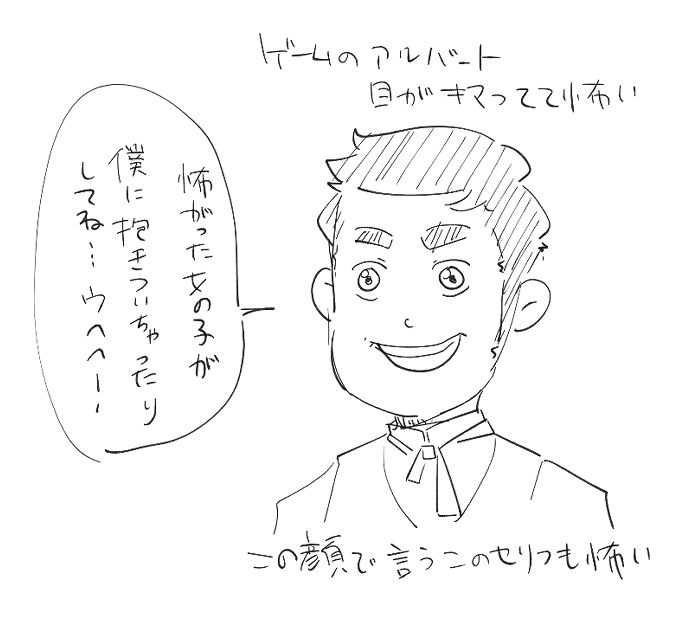 ゲームのアルバート
目がキマってて怖い
怖がった女の子が
僕に抱きついちゃったり
してね…ウヘヘー・
この顔で言うこのセリフも怖い